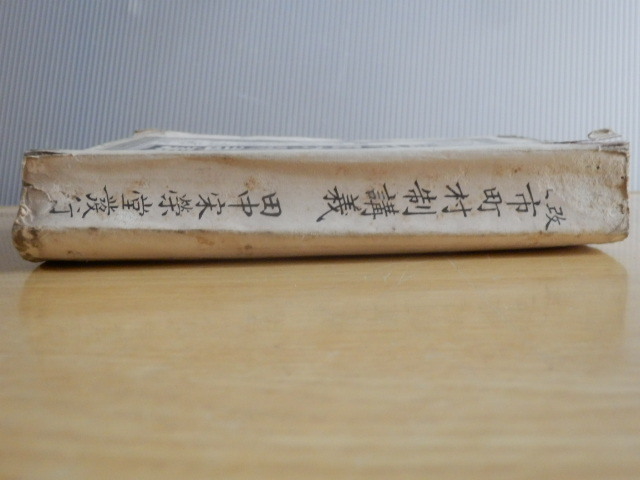 改正
市町村制講義 田中宋榮堂發行